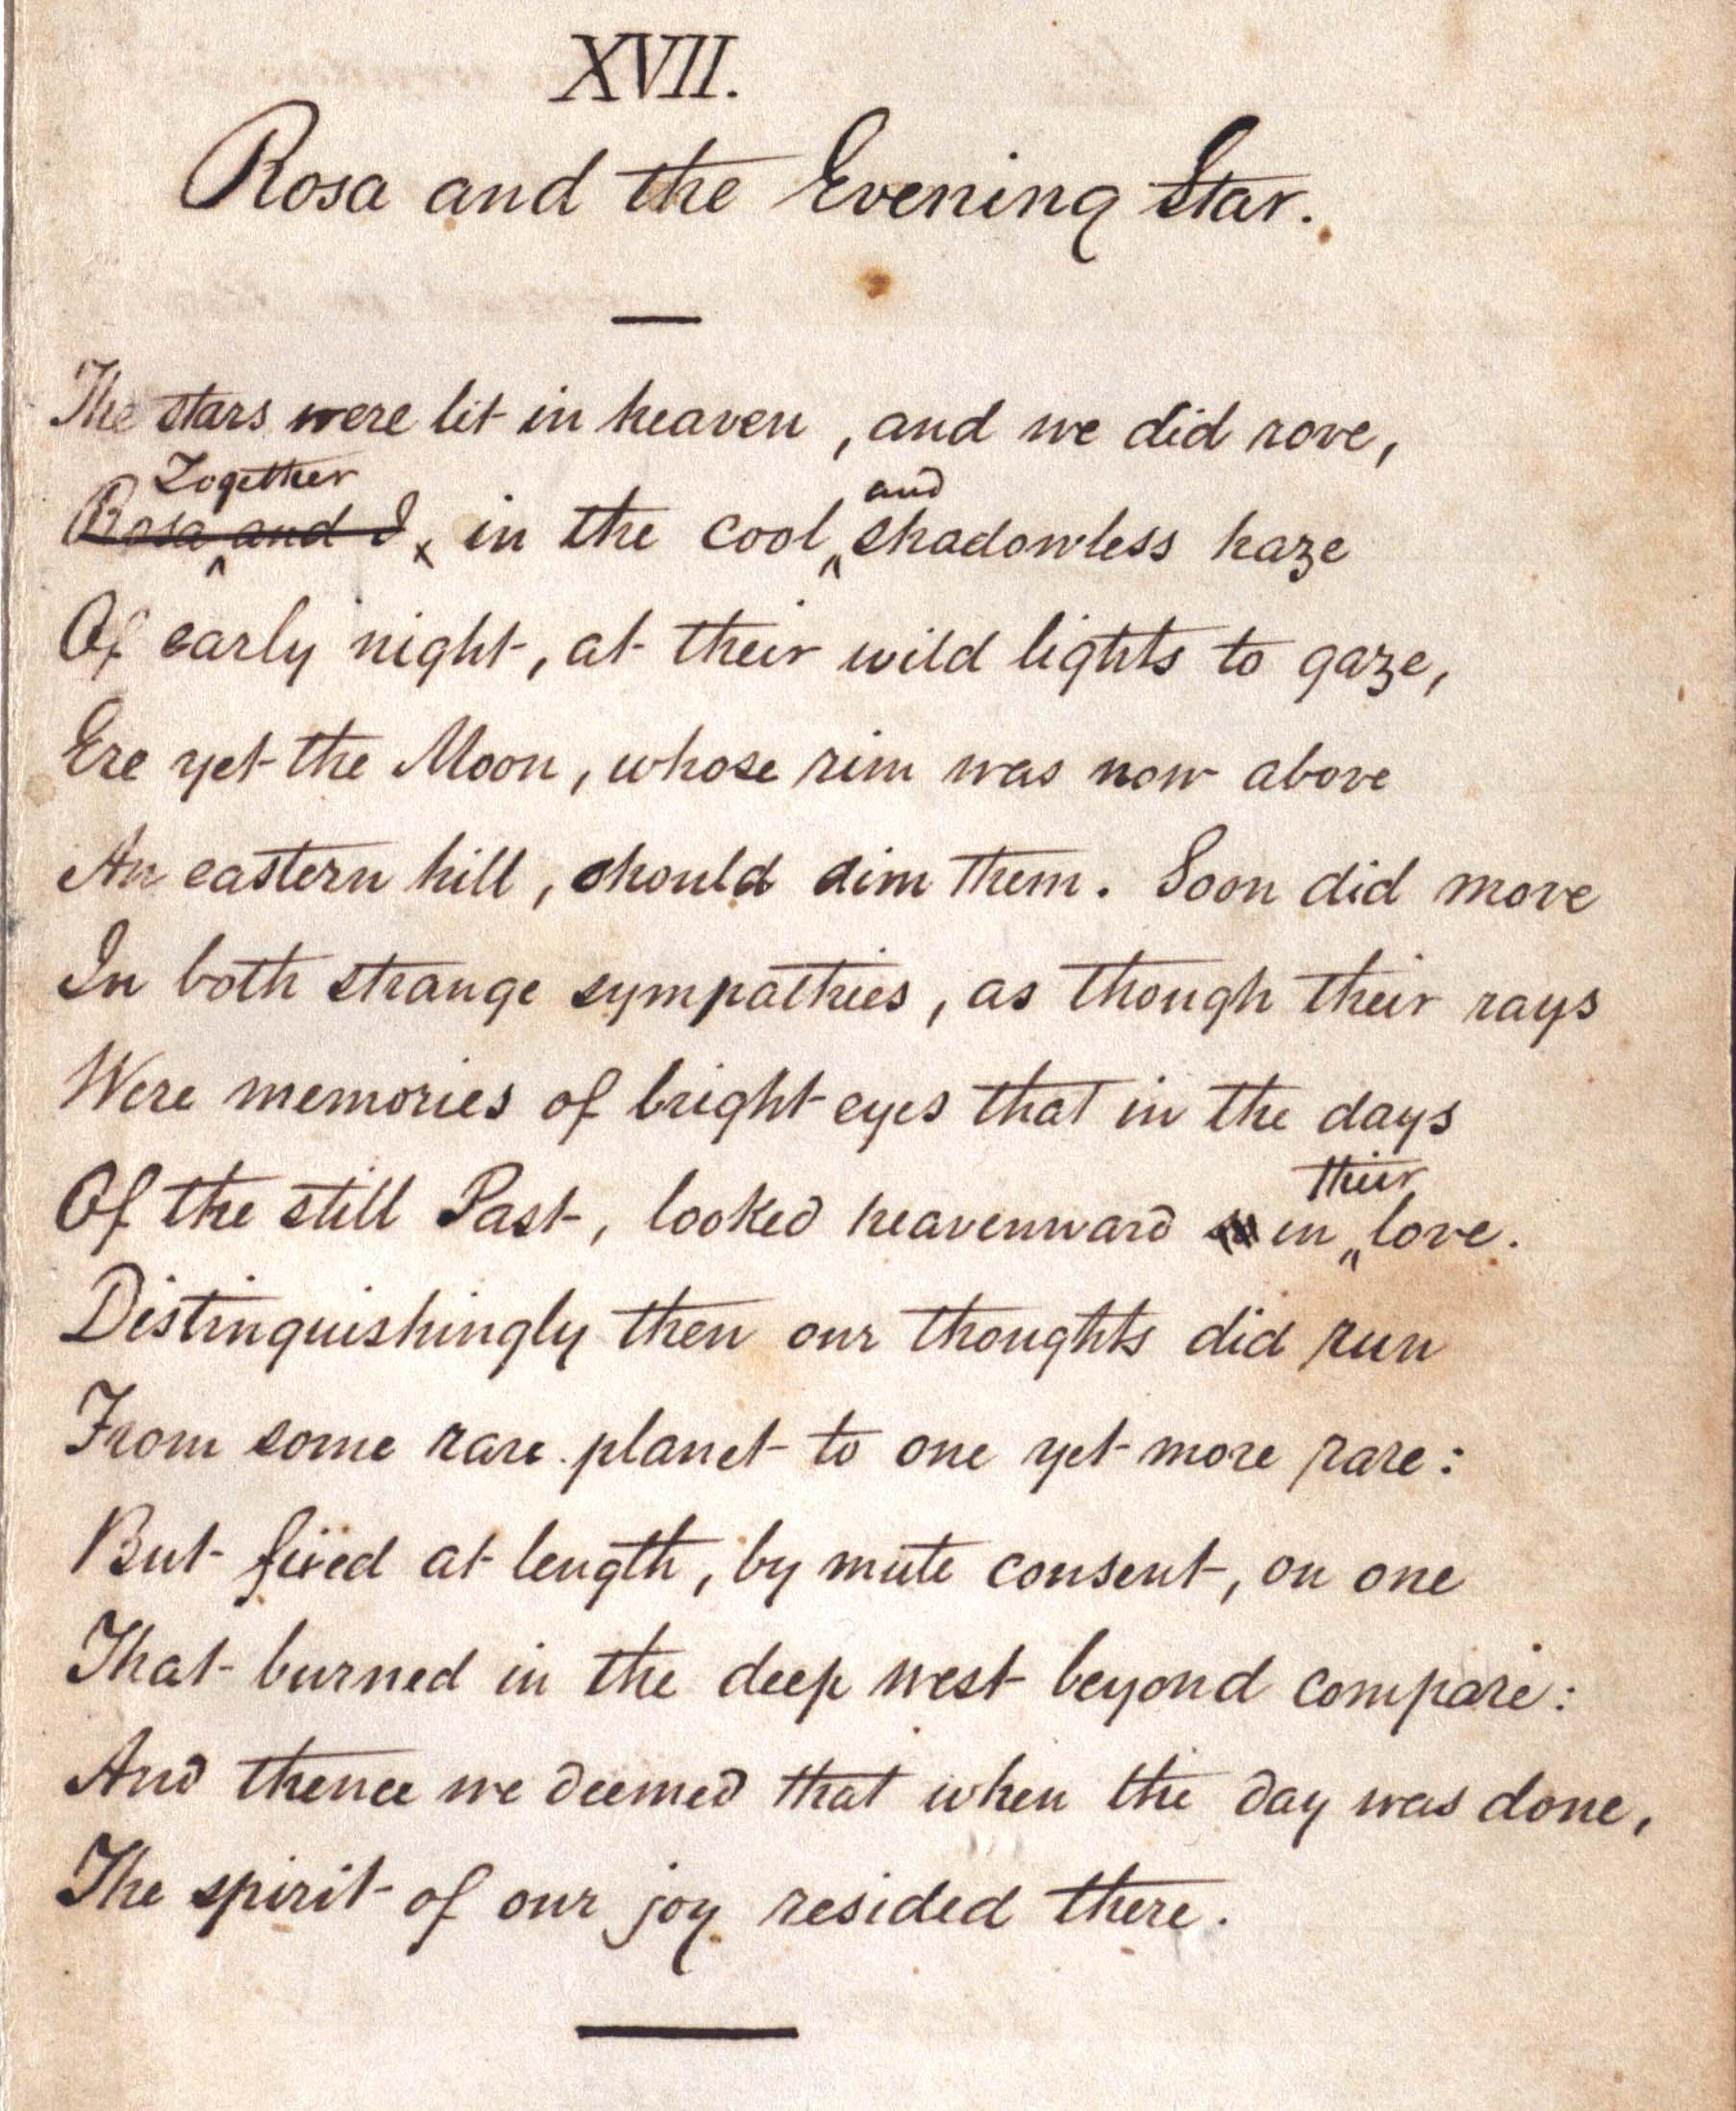 XVII.
Rosa and the Evening Star.
The stars were lit in heaven, and we did rove,
Together and
Rosa and I, in the cool, shadowless haze
Of early night, at their wild lights to gaze,
Ere yet the Moon, whose rim was now above
An eastern hill, should dim them. Soon did move
In both strange sympathies, as though their rays
Were memories of bright eyes that in the days
their
Of the still Past, looked heavenward in love.
Distinguishingly then our thoughts did run
From some rare planet to one yet more rare:
But fixed at length, by mute consent, on one
That burned in the deep west beyond compare:
And thence we deemed that when the day was done,
The spirit of our joy resided there.